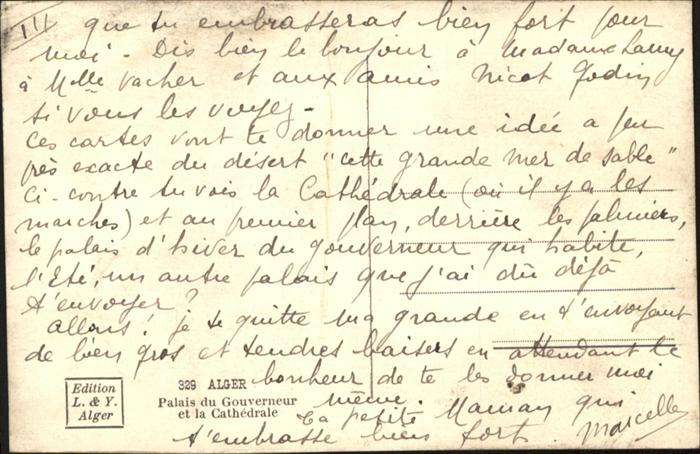 III
que tu embrasseras bien fort pour
moi - Dis bien le bonjour à Madame Lamy
à Melle Vacher et aux amis Nicot Godin
si vous les voyez -
Ces cartes vont te donner une idée a peu
près exacte du désert "cette grande mer de sable"
Ci-contre tu vois la Cathédrale (où il y a les
marches) et au premier plan, derrière les palmiers,
le palais d'hiver du gouverneur qui habite,
l'Eté, un autre palais que j'ai dû déjà
t'envoyer ?
Allons ! je te quitte ma grande en t'envoyant
de bien gros et tendres baisers en attendant le
bonheur de te les donner moi
même.
Ta petite Maman qui
t'embrasse bien fort. Marcelle
Edition
L. & Y.
Alger
329 ALGER
Palais du Gouverneur
et la Cathédrale